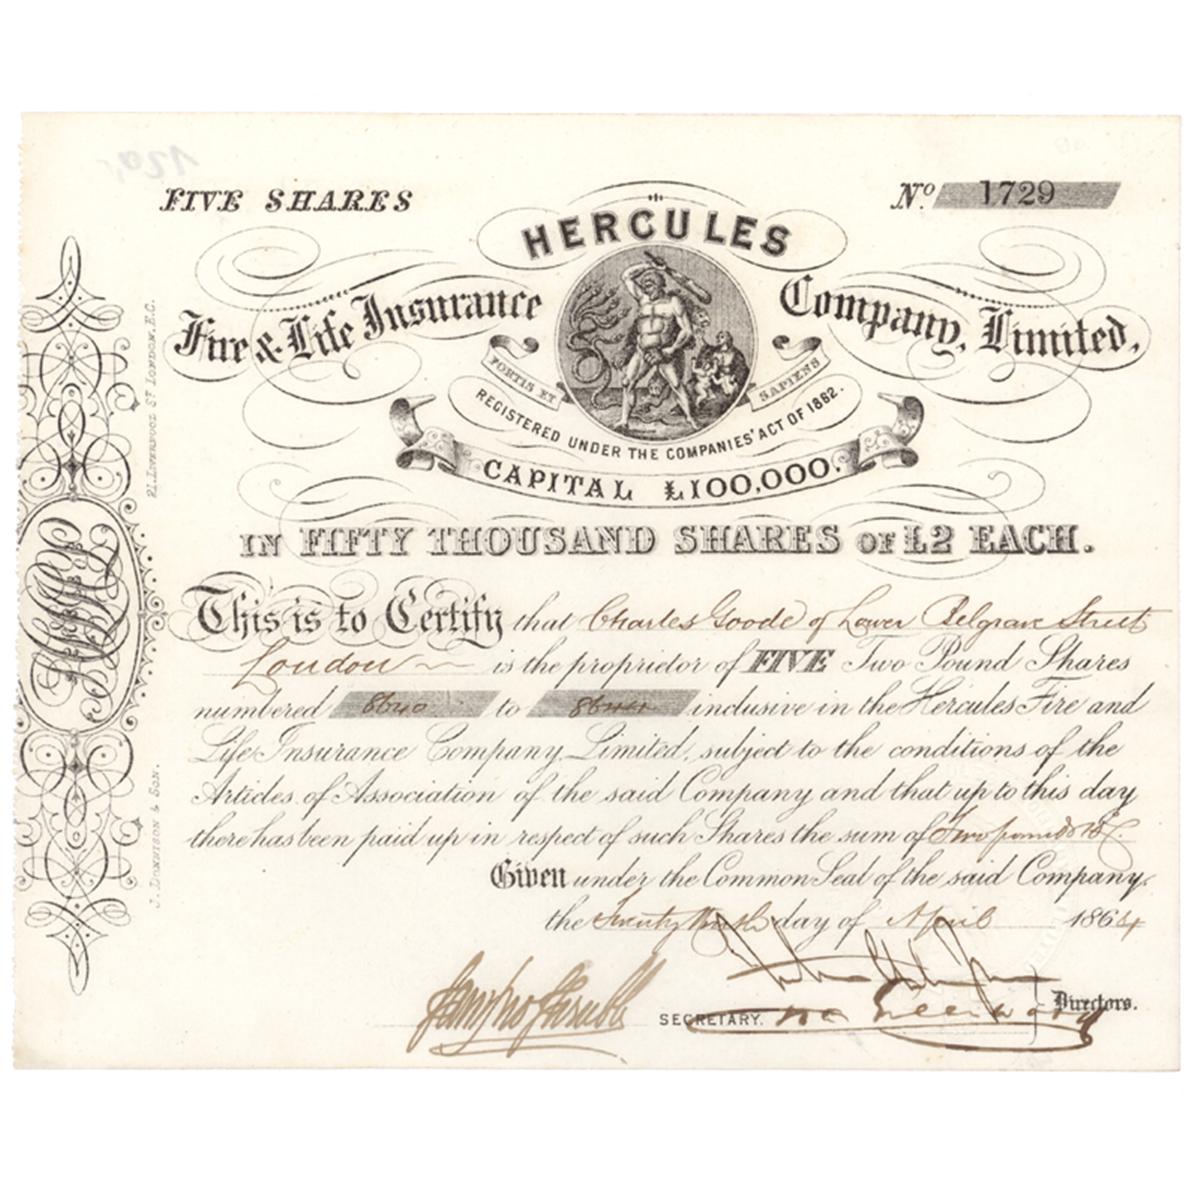 FIVE SHARES
No. 1729
HERCULES
Fire & Life Insurance Company, Limited,
FORTIS ET SAPIENS
REGISTERED UNDER THE COMPANIES' ACT OF 1862.
CAPITAL £100,000.
IN FIFTY THOUSAND SHARES OF £2 EACH.
This is to Certify that Charles Goode of Lower Belgrave Street
London is the proprietor of FIVE Two Pound Shares
numbered 8640 to 8644 inclusive in the Hercules Fire and
Life Insurance Company, Limited, subject to the conditions of the
Articles of Association of the said Company and that up to this day
there has been paid up in respect of such Shares the sum of Two pounds
Given under the Common Seal of the said Company,
the day of April 1864
Directors.
SECRETARY.
LIVERPOOL ST LONDON, E.C.
& SON.